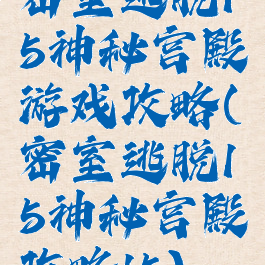 密室逃脱1
5神秘宫殿
游戏攻略(
密室逃脱1
5神秘宫殿
攻略